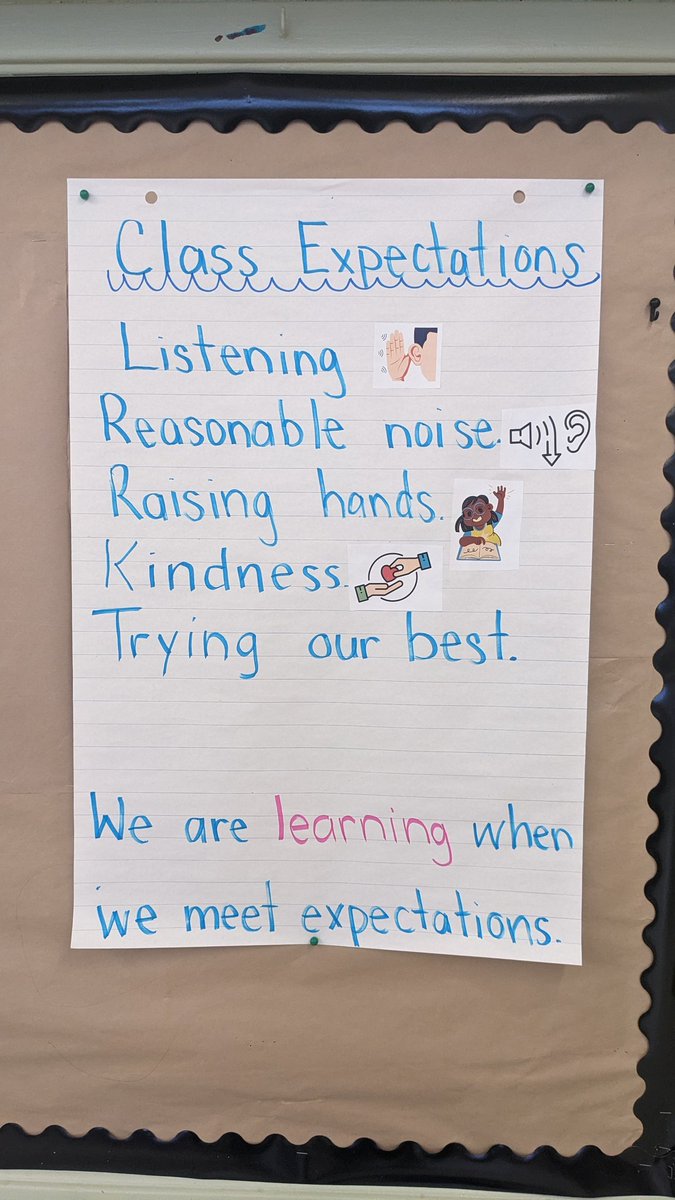 Class Expectations
Listening
Reasonable noise.
Raising hands.
Kindness.
Trying our best.
We are learning when
we meet expectations.